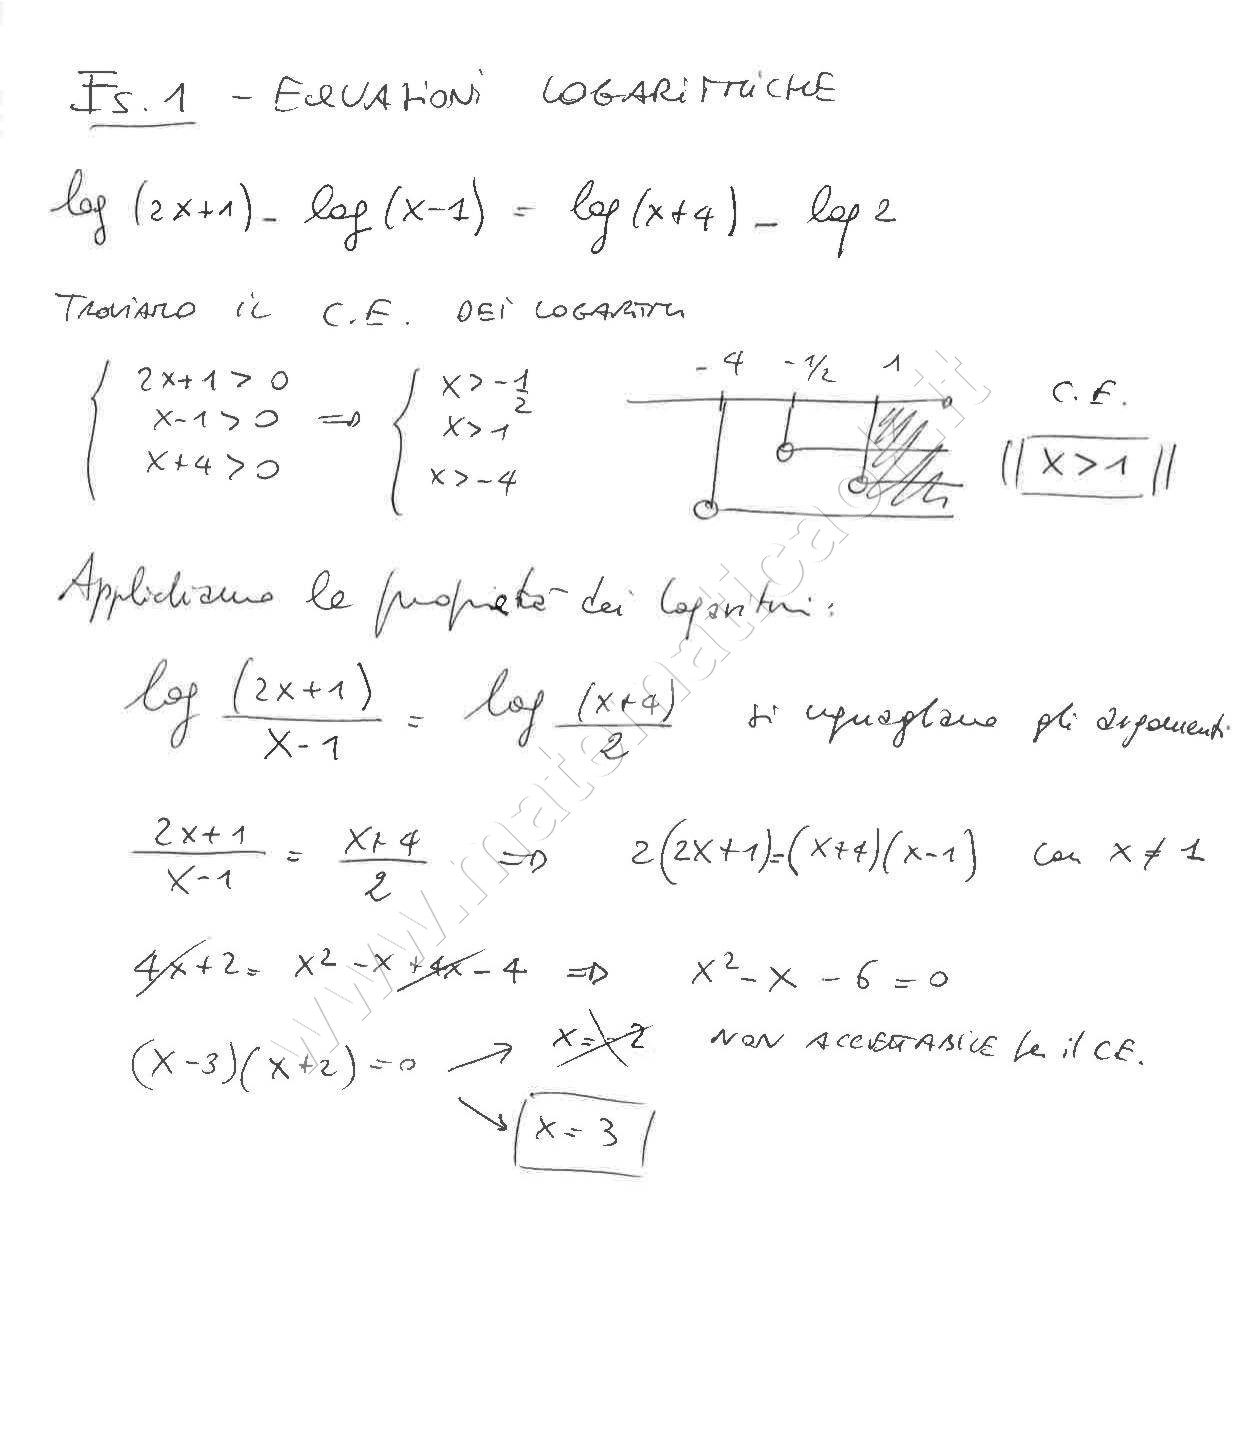 Es. 1 - EQUAZIONI LOGARITMICHE
log (2x+1) - log (x-1) = log (x+4) - log 2
TROVIAMO IL C.E. DEI LOGARITMI
{ 2x+1 > 0 ⇒ { x > -1/2
x-1 > 0 x > 1
x+4 > 0 x > -4
-4 -1/2 1
C.E.
|| x > 1 ||
Applichiamo le proprietà dei logaritmi:
log (2x+1)/(x-1) = log (x+4)/2 si uguagliano gli argomenti
(2x+1)/(x-1) = (x+4)/2 ⇒ 2(2x+1)=(x+4)(x-1) con x ≠ 1
4x+2 = x² -x +4x -4 ⇒ x² - x - 6 = 0
(x-3)(x+2) = 0 → x = -2 NON ACCETTABILE per il CE.
x = 3
www.matematicaok.it